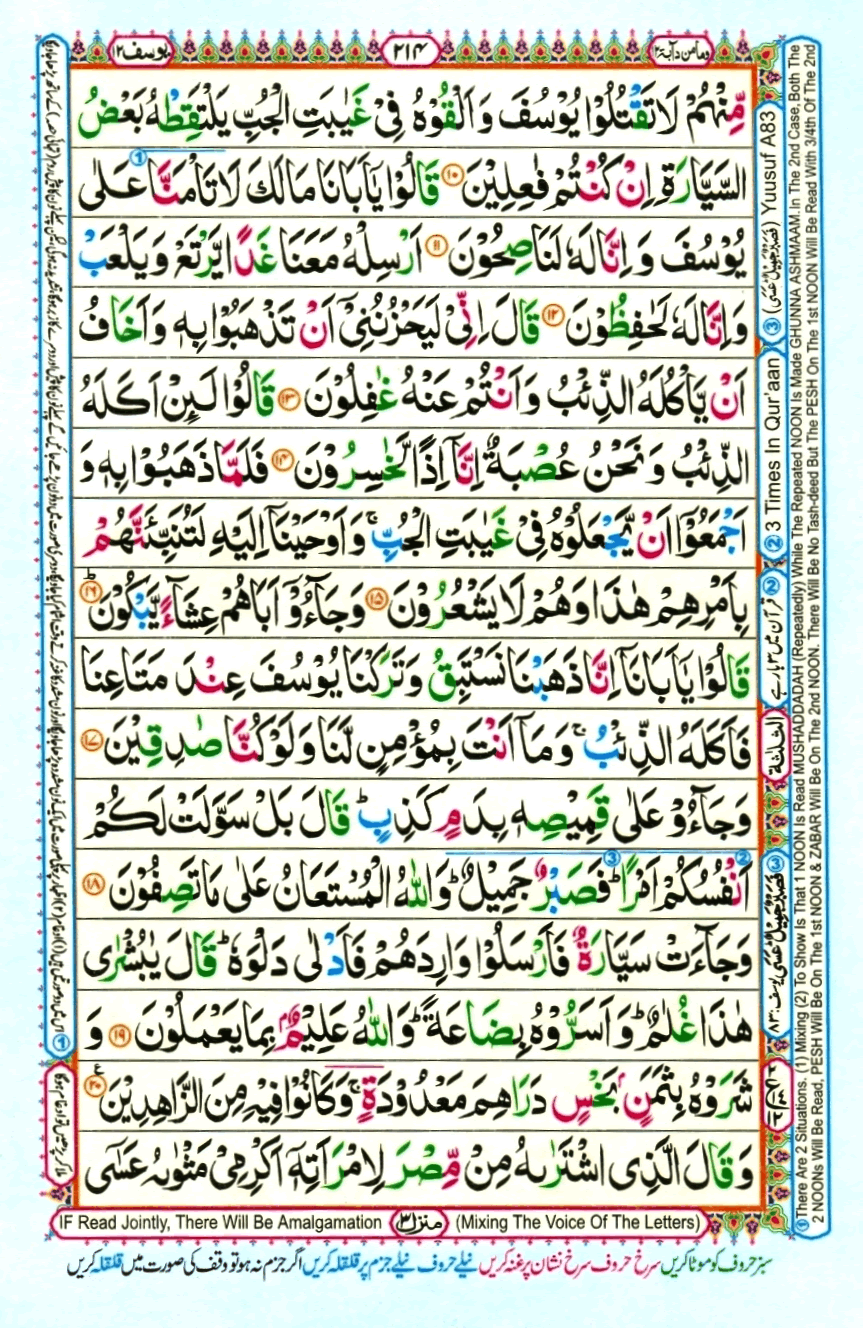 وما من دآبة ١٢
٢١٤
يوسف ١٢
مِّنْهُمْ لَا تَقْتُلُوْا يُوْسُفَ وَاَلْقُوْهُ فِيْ غَيٰبَتِ الْجُبِّ يَلْتَقِطْهُ بَعْضُ
السَّيَّارَةِ اِنْ كُنْتُمْ فٰعِلِيْنَ ۝۱۰ قَالُوْا يٰۤاَبَانَا مَالَكَ لَا تَاْمَنَّا عَلٰى
يُوْسُفَ وَاِنَّا لَهٗ لَنَاصِحُوْنَ ۝۱۱ اَرْسِلْهُ مَعَنَا غَدًا يَّرْتَعْ وَيَلْعَبْ
وَاِنَّا لَهٗ لَحٰفِظُوْنَ ۝۱۲ قَالَ اِنِّيْ لَيَحْزُنُنِيْۤ اَنْ تَذْهَبُوْا بِهٖ وَاَخَافُ
اَنْ يَّاْكُلَهُ الذِّئْبُ وَاَنْتُمْ عَنْهُ غٰفِلُوْنَ ۝۱۳ قَالُوْا لَئِنْ اَكَلَهُ
الذِّئْبُ وَنَحْنُ عُصْبَةٌ اِنَّاۤ اِذًا لَّخٰسِرُوْنَ ۝۱۴ فَلَمَّا ذَهَبُوْا بِهٖ وَ
اَجْمَعُوْۤا اَنْ يَّجْعَلُوْهُ فِيْ غَيٰبَتِ الْجُبِّ ۚ وَاَوْحَيْنَاۤ اِلَيْهِ لَتُنَبِّئَنَّهُمْ
بِاَمْرِهِمْ هٰذَا وَهُمْ لَا يَشْعُرُوْنَ ۝۱۵ وَجَآءُوْۤ اَبَاهُمْ عِشَآءً يَّبْكُوْنَ ؕ۝۱۶
قَالُوْا يٰۤاَبَانَاۤ اِنَّا ذَهَبْنَا نَسْتَبِقُ وَتَرَكْنَا يُوْسُفَ عِنْدَ مَتَاعِنَا
فَاَكَلَهُ الذِّئْبُ ۚ وَمَاۤ اَنْتَ بِمُؤْمِنٍ لَّنَا وَلَوْ كُنَّا صٰدِقِيْنَ ۝۱۷
وَجَآءُوْ عَلٰى قَمِيْصِهٖ بِدَمٍ كَذِبٍ ؕ قَالَ بَلْ سَوَّلَتْ لَكُمْ
اَنْفُسُكُمْ اَمْرًا ؕ فَصَبْرٌ جَمِيْلٌ ؕ وَاللّٰهُ الْمُسْتَعَانُ عَلٰى مَا تَصِفُوْنَ ۝۱۸
وَجَآءَتْ سَيَّارَةٌ فَاَرْسَلُوْا وَارِدَهُمْ فَاَدْلٰى دَلْوَهٗ ؕ قَالَ يٰبُشْرٰى
هٰذَا غُلٰمٌ ؕ وَاَسَرُّوْهُ بِضَاعَةً ؕ وَاللّٰهُ عَلِيْمٌۢ بِمَا يَعْمَلُوْنَ ۝۱۹ وَ
شَرَوْهُ بِثَمَنٍۭ بَخْسٍ دَرَاهِمَ مَعْدُوْدَةٍ ۚ وَكَانُوْا فِيْهِ مِنَ الزَّاهِدِيْنَ ۝۲۰
وَقَالَ الَّذِي اشْتَرٰىهُ مِنْ مِّصْرَ لِامْرَاَتِهٖۤ اَكْرِمِيْ مَثْوٰىهُ عَسٰۤى
③ (فَصَبْرٌ جَمِيْلٌ ؕ عَسَى) Yuuusuf A83
② 3 Times In Qur'aan
② قرآن میں ۳ بار ہے
الثلثة
③ فَصَبْرٌ جَمِيْلٌ ؕ عَسَى یوسف: ۸۳
①There Are 2 Situations. (1) Mixing (2) To Show Is That 1 NOON Is Read MUSHADDADAH (Repeatedly) While The Repeated NOON Is Made GHUNNA ASHMAAM.In The 2nd Case,Both The
2 NOONs Will Be Read, PESH Will Be On The 1st NOON & ZABAR Will Be On The 2nd NOON. There Will Be No Tash-deed But The PESH On The 1st NOON Will Be Read With 3/4th Of The 2nd
IF Read Jointly, There Will Be Amalgamation
منزل ۳
(Mixing The Voice Of The Letters)
سبز حروف کو موٹا کریں سرخ حروف سرخ نشان پر غنہ کریں نیلے حروف نیلے جزم پر قلقلہ کریں اگر جزم نہ ہو تو وقف کی صورت میں قلقلہ کریں